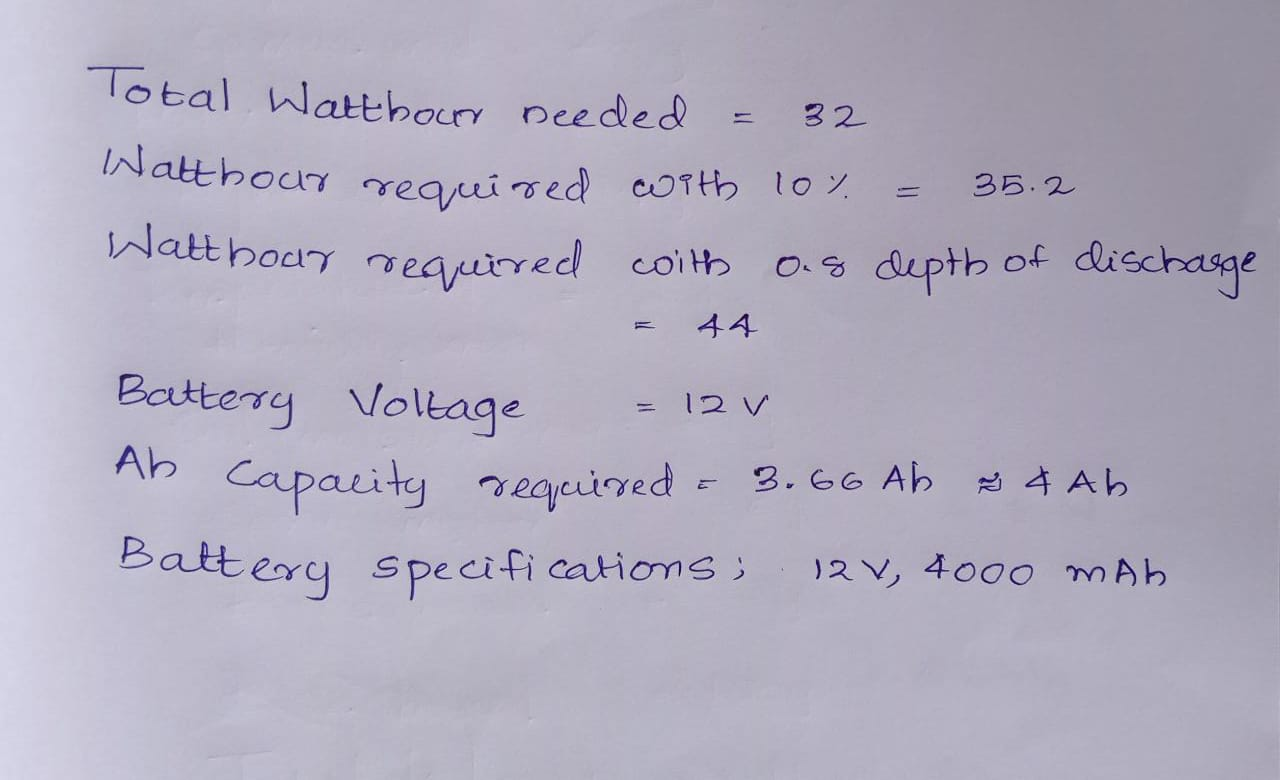 Total Watthour needed = 32
Watthour required with 10% = 35.2
Watthour required with 0.8 depth of discharge
= 44
Battery Voltage = 12 V
Ah Capacity required = 3.66 Ah ≈ 4 Ah
Battery specifications; 12 V, 4000 mAh